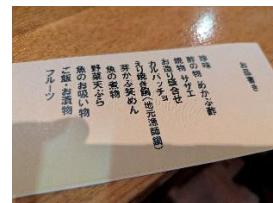 お品書き
珍味
酢の物 めかぶ酢
焼物 サザエ
お造り盛合せ
カルパッチョ
えり焼き鍋(地元漁師鍋)
芽かぶ笑めん
魚の煮物
野菜天ぷら
魚のお吸い物
ご飯・お漬物
フルーツ